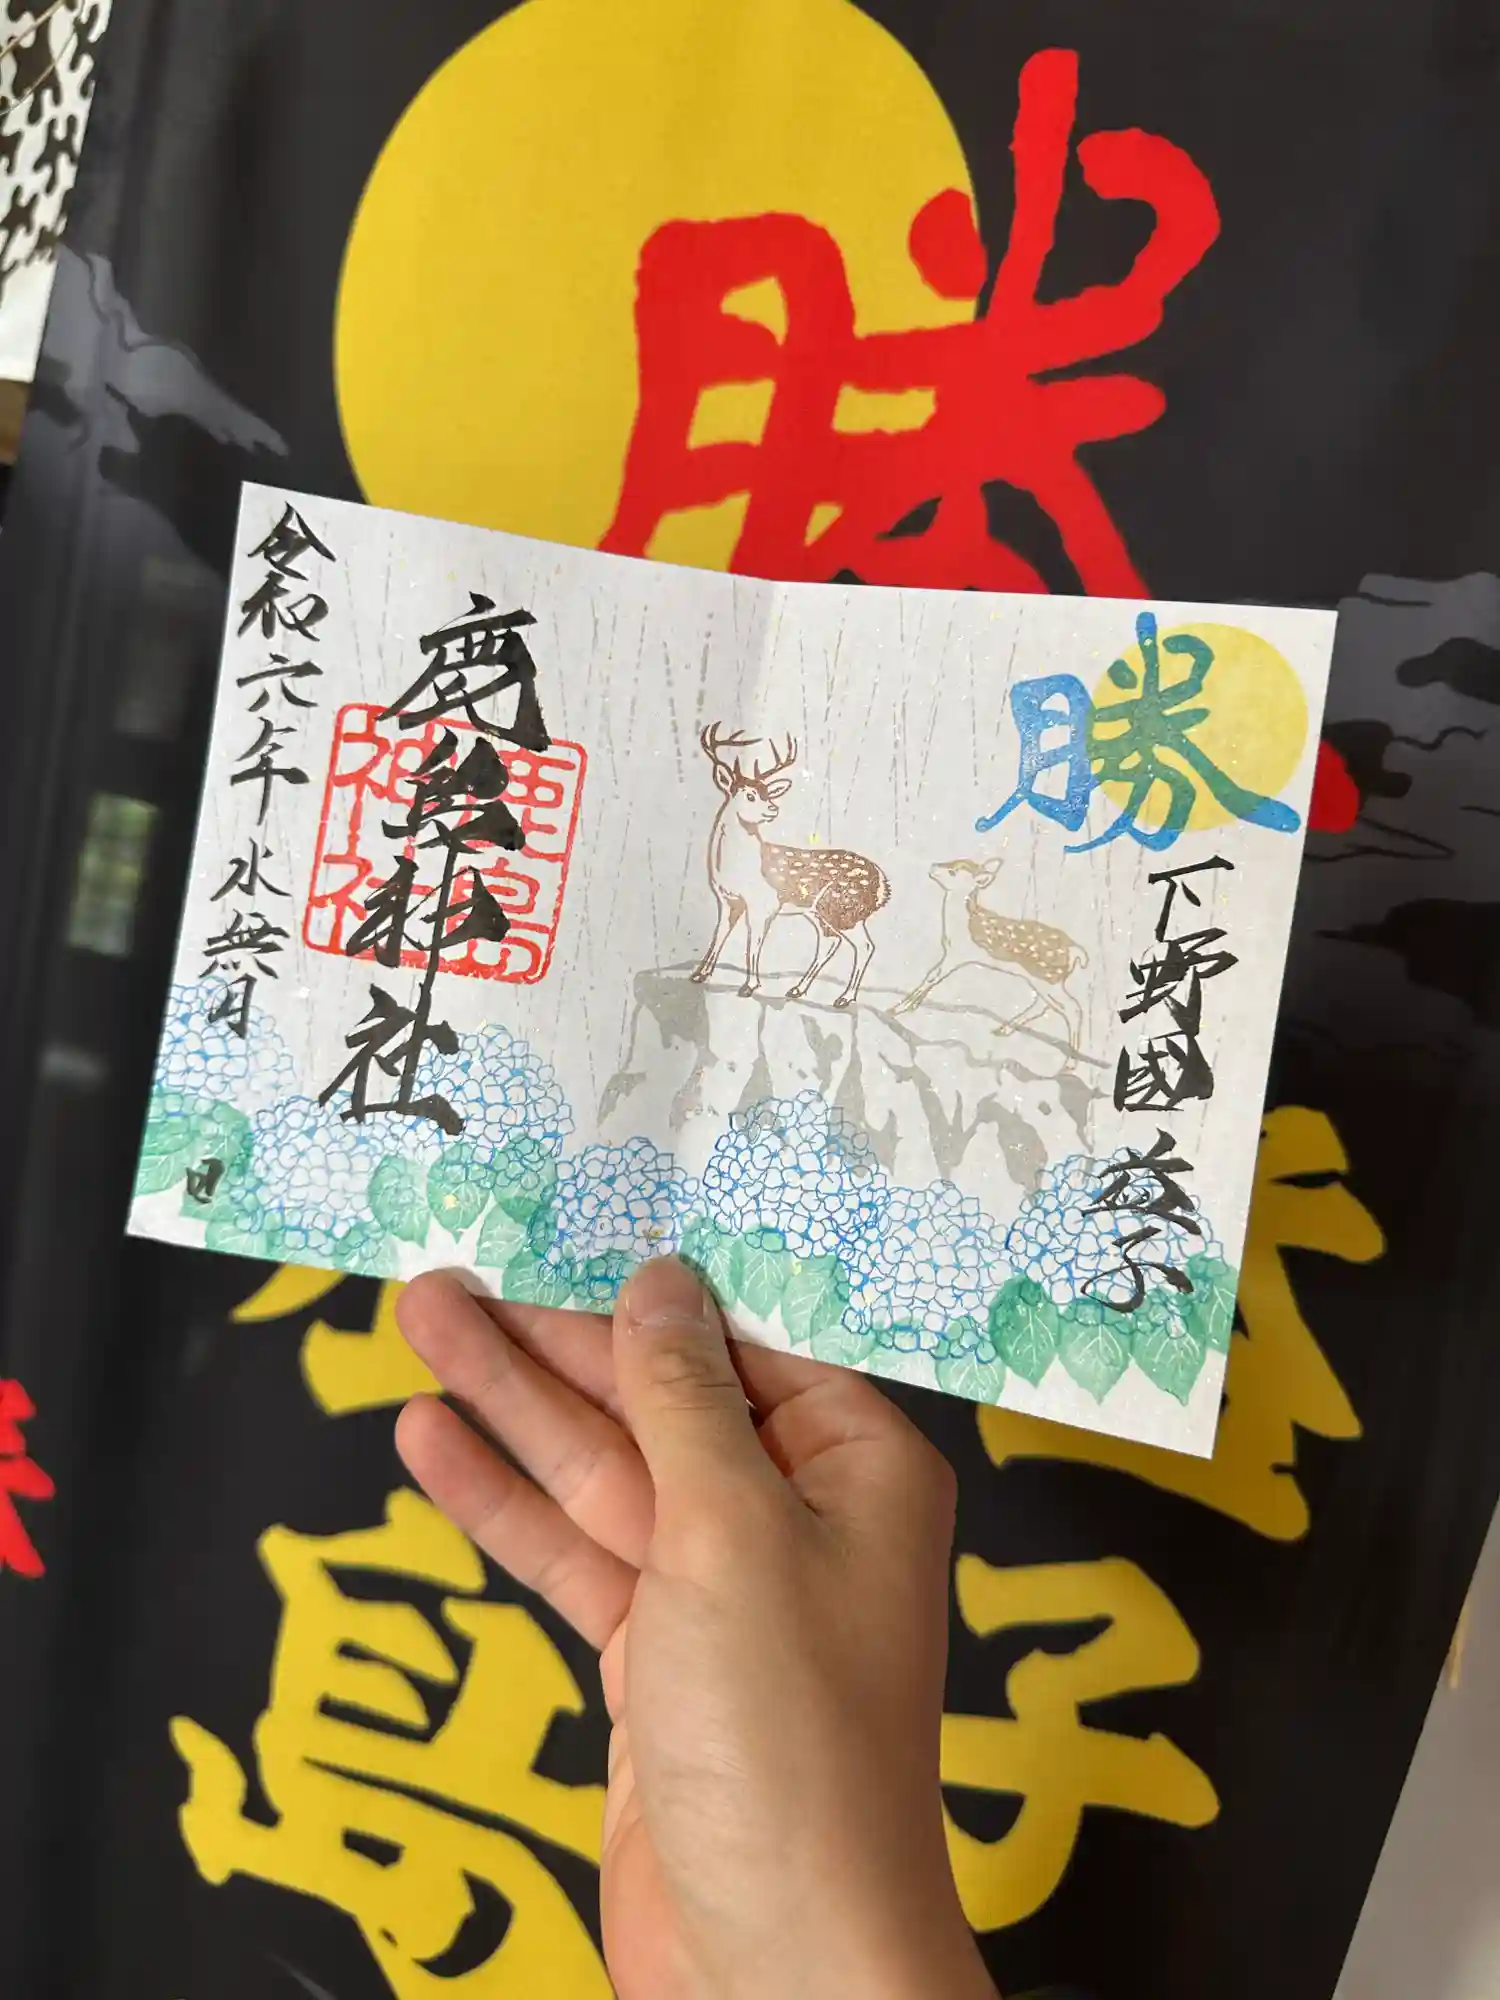 勝
勝
下野國 益子
鹿島神社
鹿島神社
令和六年 水無月
日
益子